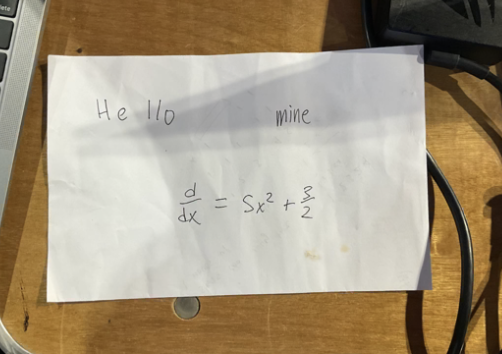 Hello mine
d/dx = 5x² + 3/2